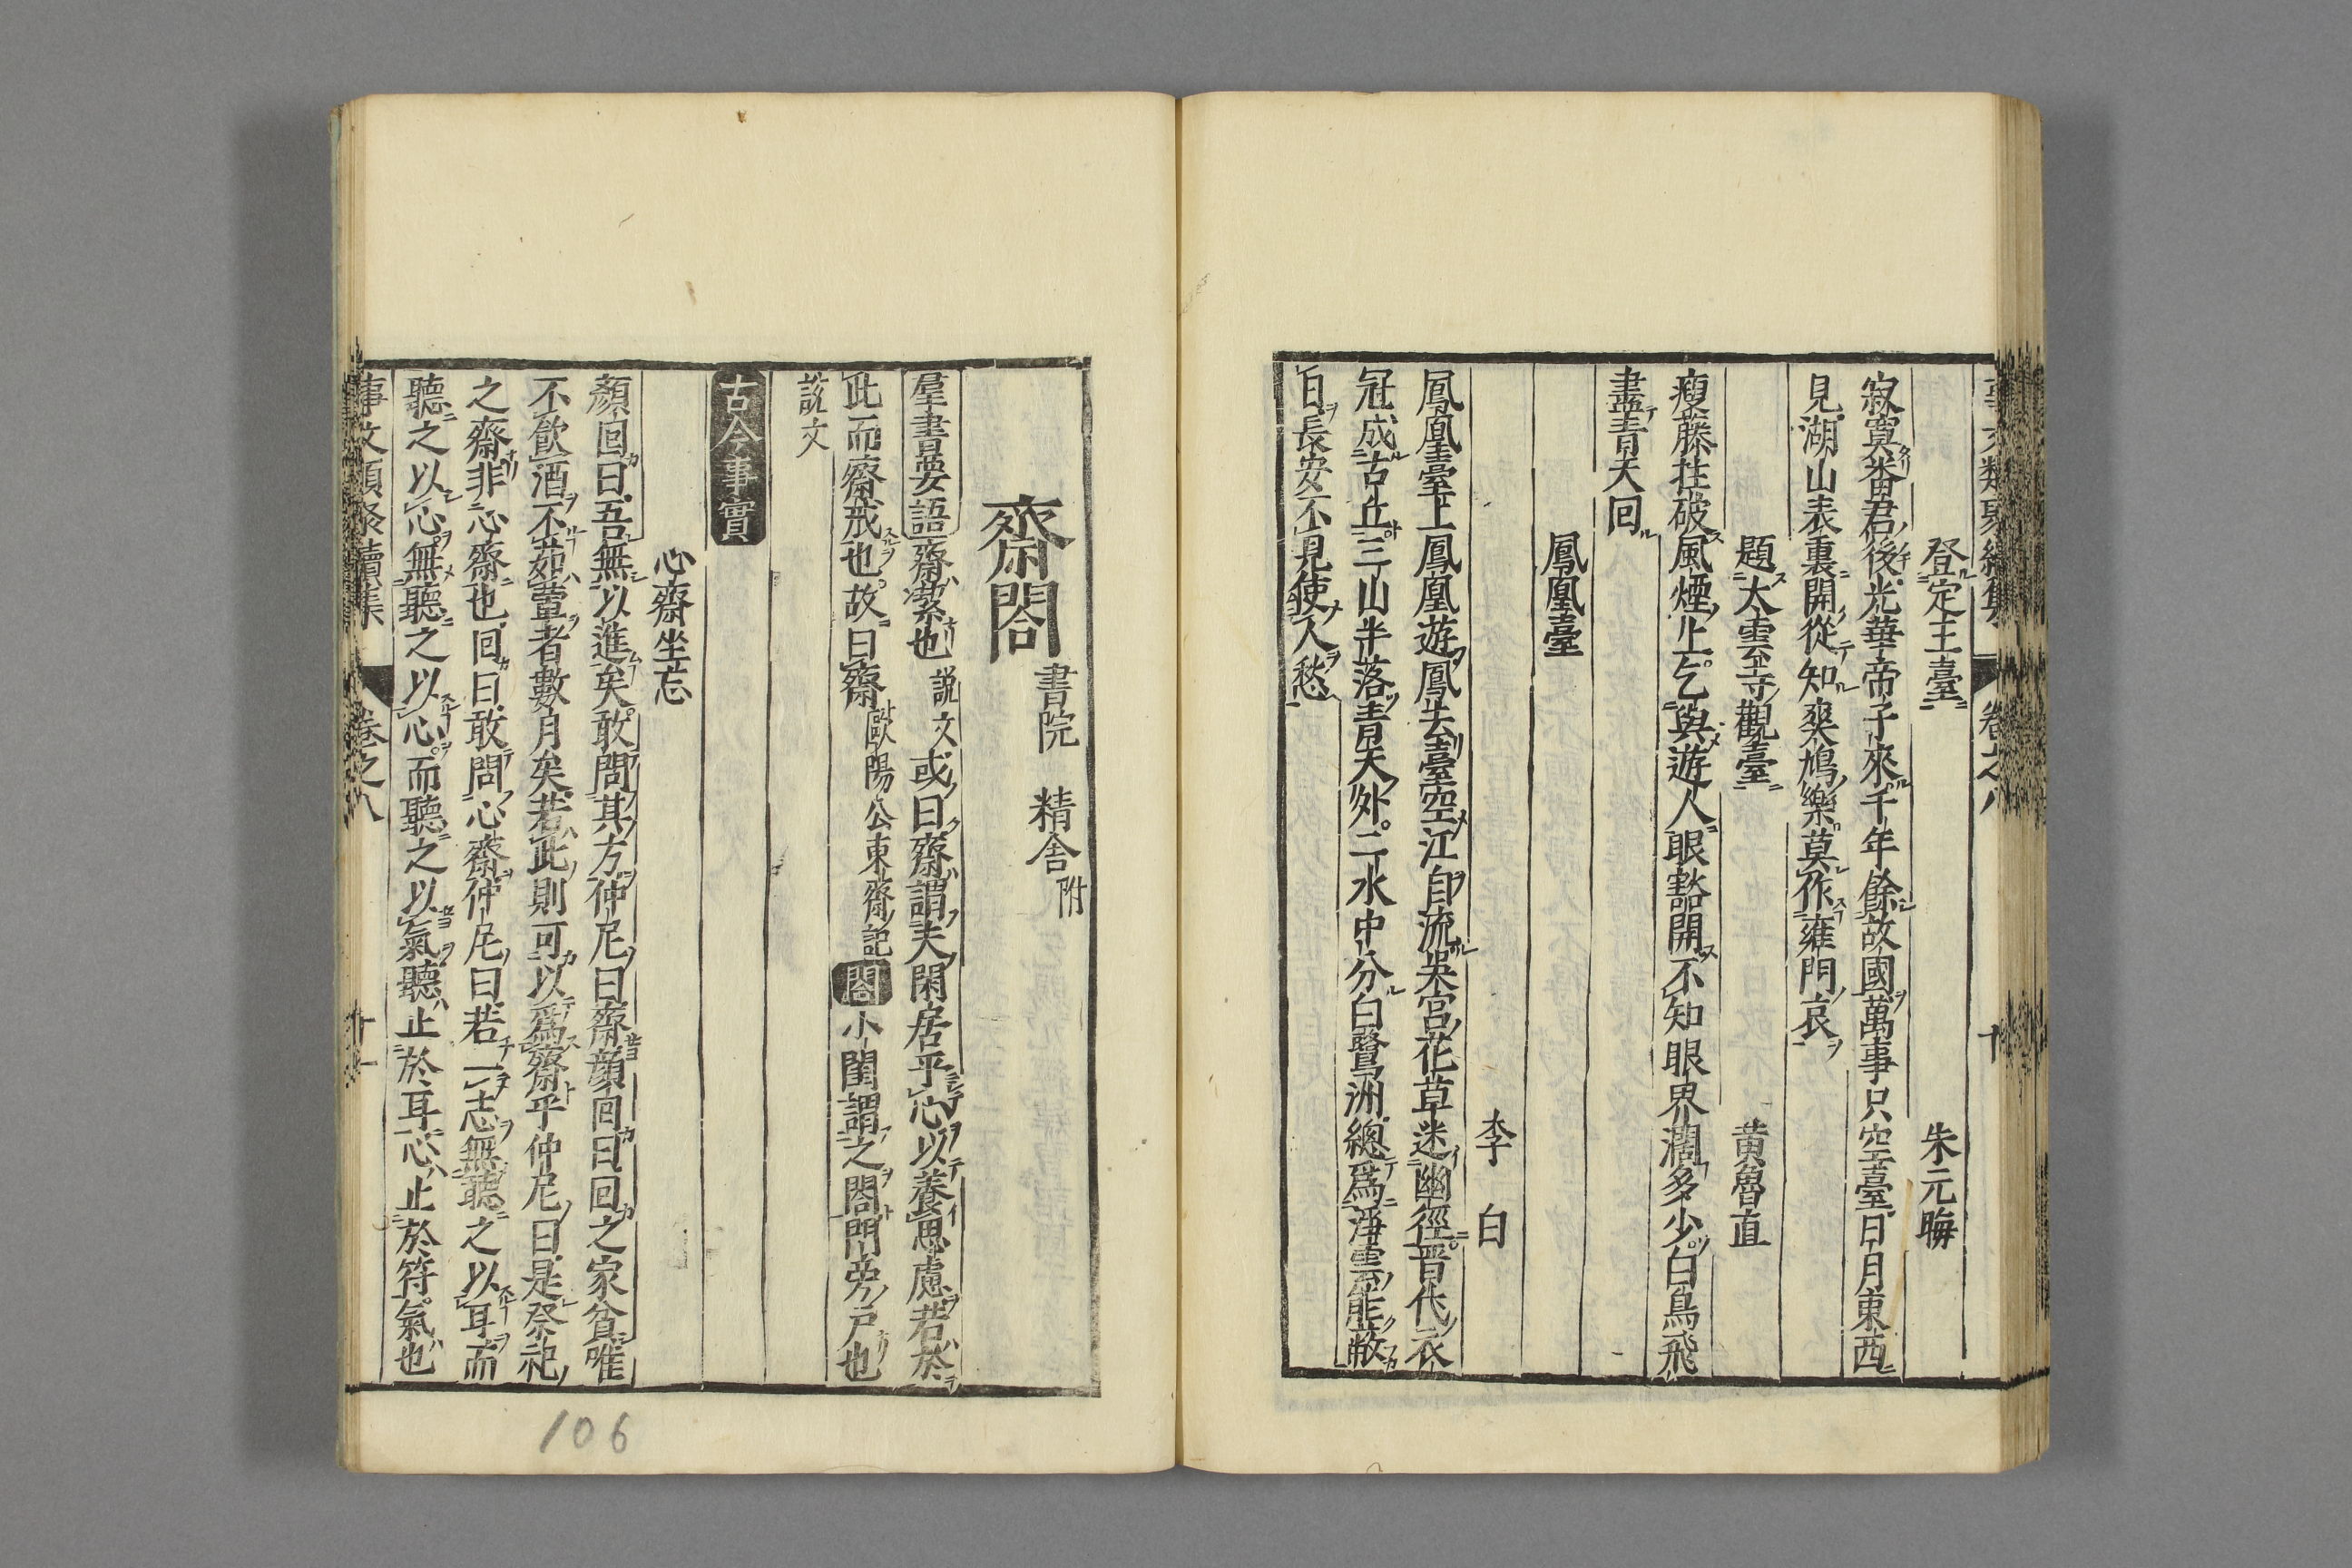 登定王臺　朱元晦
寂寞番君後光華帝子來千年餘故國萬事只空臺日月東西
見湖山表裏開從知爽鳩樂莫作雍門哀
題大雲寺觀臺　黄魯直
瘦藤拄破風煙上乞與遊人眼豁開不知眼界濶多少白鳥飛
盡青天回
鳳凰臺
李白
鳳凰臺上鳳凰遊鳳去臺空江自流吳宮花草迷幽徑晋代衣
冠成古丘三山半落青天外二水中分白鷺洲總爲浮雲能蔽
白長安不見使人愁
齋閤　書院　精舎附
羣書要語齋潔也說文或曰齋謂夫閑居平心以養思慮若於
此而齋戒也故曰齋歐陽公東齋記閤小閨謂之閤門旁戸也
説文
古今事實
心齋坐忘
顏回曰吾無以進矣敢問其方仲尼曰齋顔回曰回之家貧唯
不飲酒不茹葷者數月矣若此則可以爲齋乎仲尼曰是祭祀
之齋非心齋也回曰敢問心齋仲尼曰若一志無聽之以耳而
聽之以心無聽之以心而聽之以氣聽止於耳心止於符氣也
事文類聚續集　卷之八　十一